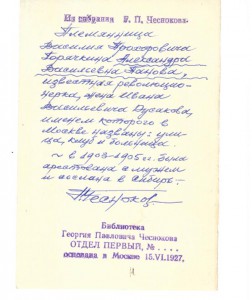 Из собрания Г. П. Чеснокова.
Племянница
Василия Прохоровича
Горячкина Александра
Васильевна Панова,
известная революцио-
нерка, жена Ивана
Васильевича Русакова,
именем которого в
Москве названы: ули-
ца, клуб и больница.
~ в 1903-1905 гг. была
арестована с мужем
и сослана в Сибирь.—
Чесноков
Библиотека
Георгия Павловича Чеснокова
ОТДЕЛ ПЕРВЫЙ, №....
основана в Москве 15.VI.1927.